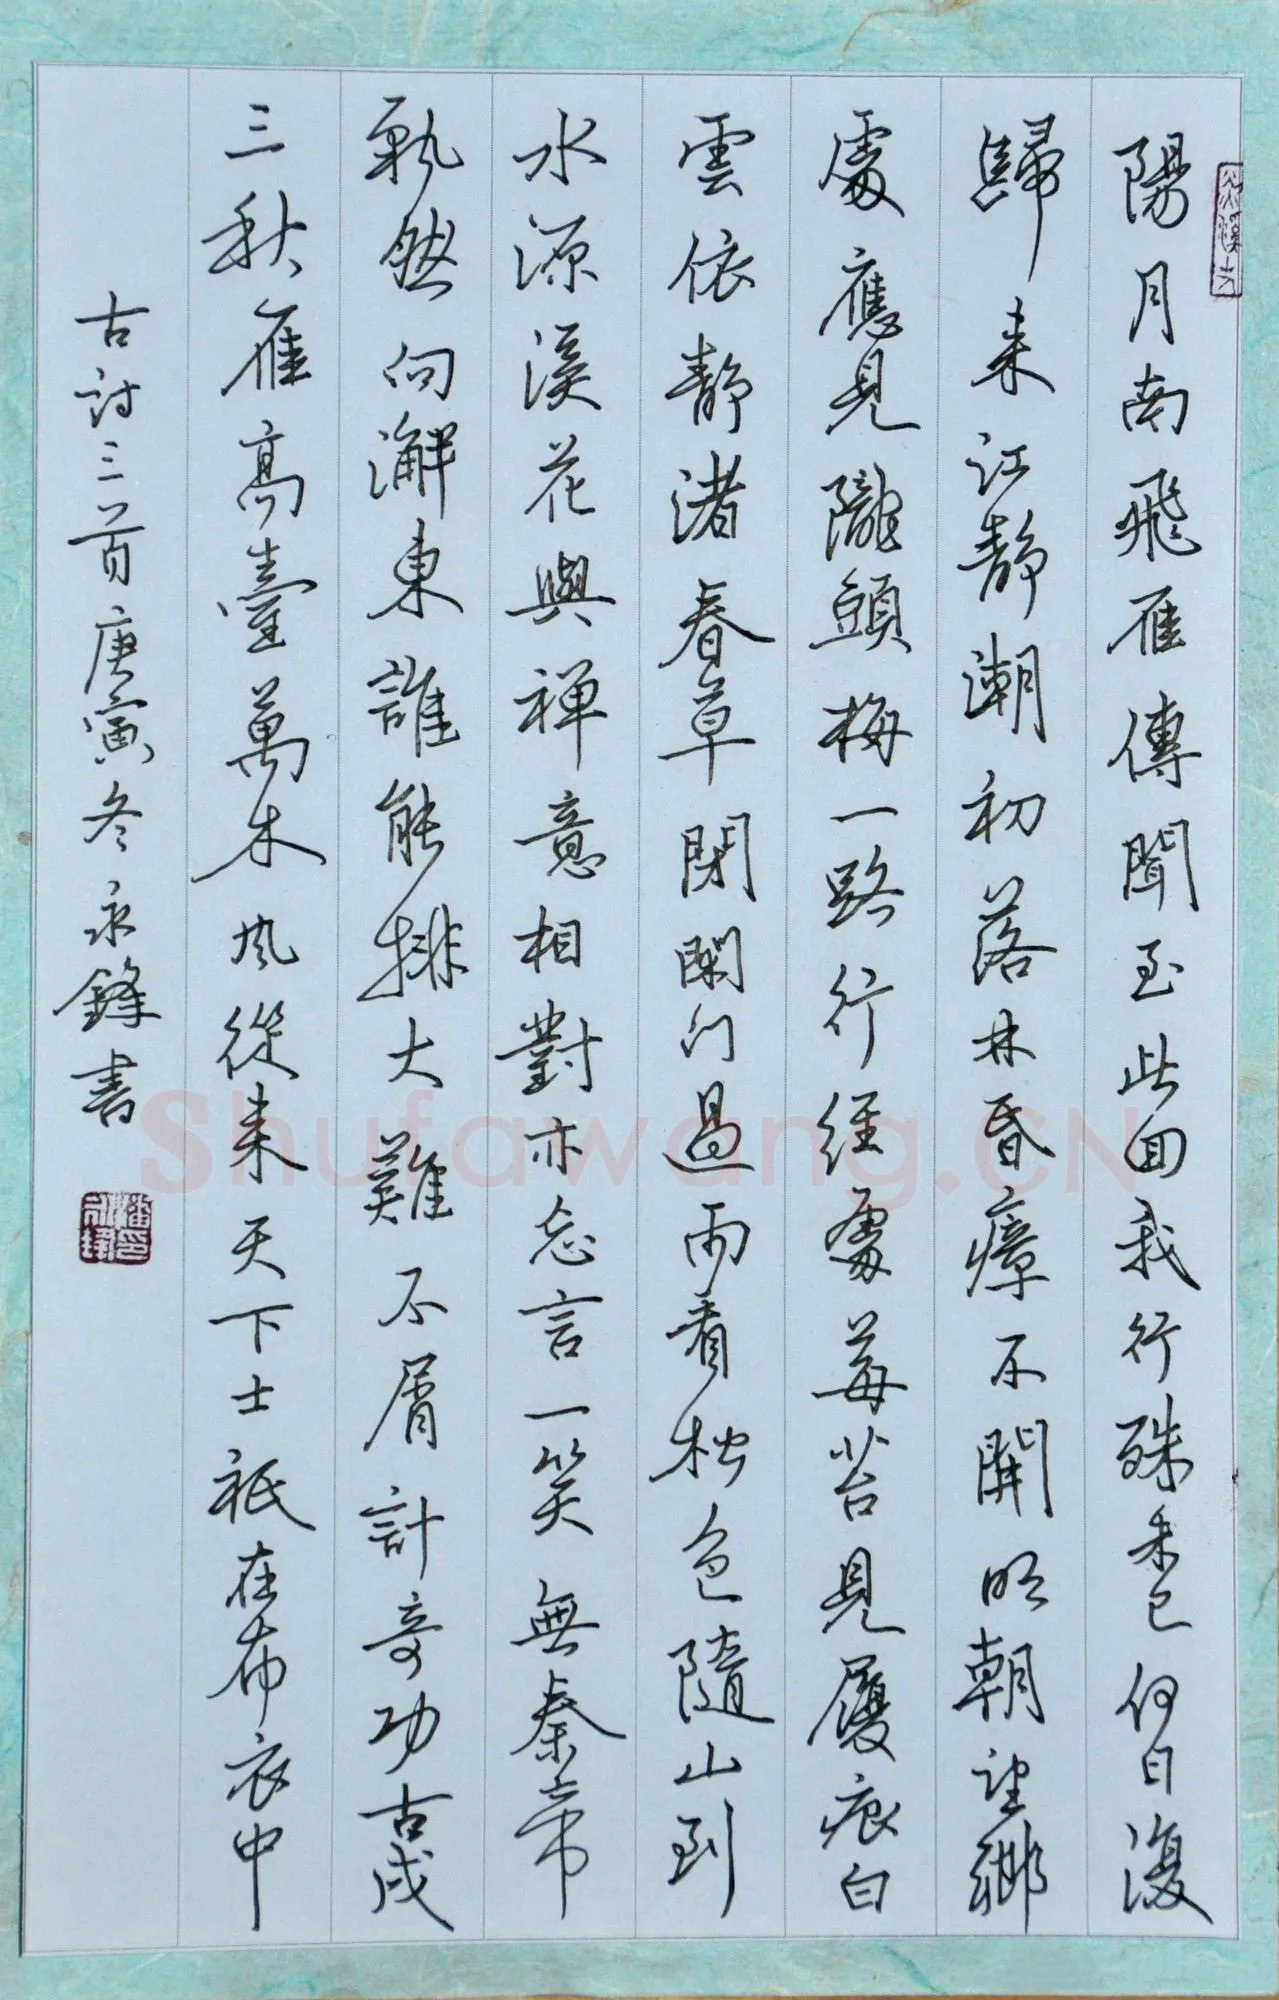 陽月南飛雁傳聞至此回我行殊未已何日復
歸来江静潮初落林昏瘴不開明朝望鄉
處應見隴頭梅一路行経處莓苔見履痕白
雲依静渚春草閉閑门過雨看松色隨山到
水源溪花與禅意相對亦忘言一笑無秦帝
飄然向澥東誰能排大難不屑計奇功古戍
三秋雁高臺萬木風從来天下士祇在布衣中
古詩三首庚寅冬永鋒書
Shufawang.CN